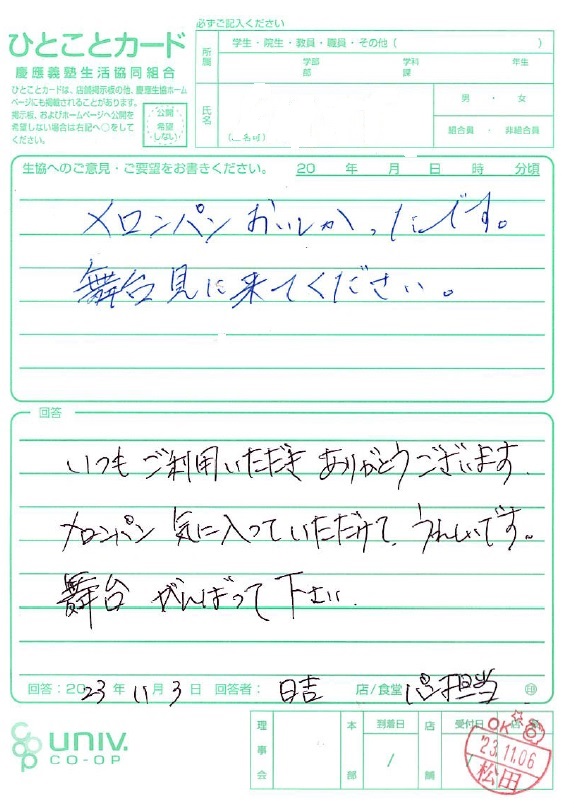 必ずご記入ください
ひとことカード
慶應義塾生活協同組合
ひとことカードは、店舗掲示板の他、慶應生協ホームページにも掲載されることがあります。
掲示板、およびホームページへ公開を
希望しない場合は右記へ○をして
ください。
公開
希望
しない
所属
学生・院生・教員・職員・その他( )
学部 学科 年生
部 課
氏名
男 ・ 女
組合員 ・ 非組合員
生協へのご意見・ご要望をお書きください。 20 年 月 日 時 分頃
メロンパンおいしかったです。
舞台見に来てください。
回答
いつもご利用いただきありがとうございます.
メロンパン 気に入っていただけて、うれしいです。
舞台 がんばって下さい.
回答:2023年11月3日 回答者: 日吉 店/食堂 パン担当 印
UNIV.
CO-OP
理事会
本部
到着日
/
店舗
受付日
OK
'23.11.06
松田